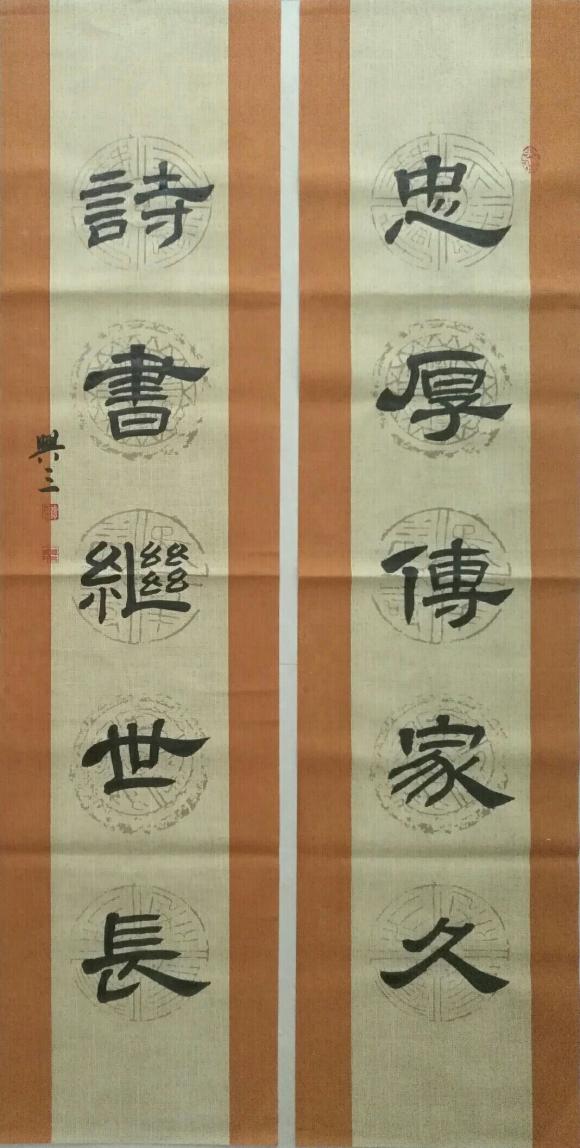 忠厚傳家久
詩書繼世長
興三